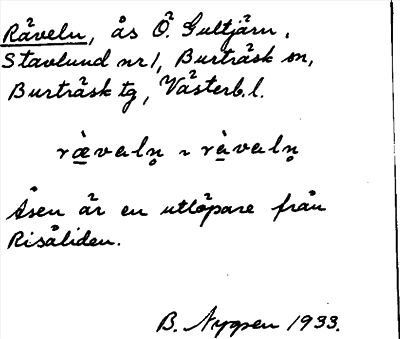 Räveln, ås Ö. Gultjärn,
Stavlund nr 1, Burträsk sn,
Burträsk tg, Västerb. l.
ræ̀valn̥ ~ ràvaln̥
Åsen är en utlöpare från
Risåliden.
B. Nygren 1933.